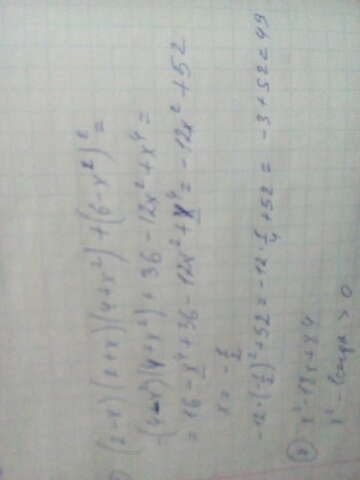 (2-x)(2+x)(4+x²)+(6-x²)²=
(4-x²)(4+x²)+36-12x²+x⁴=
=16-x⁴+36-12x²+x⁴=-12x²+52
x=-½
-12·(-½)²+52=-12·¼+52=-3+52=49
x²
x²- >0